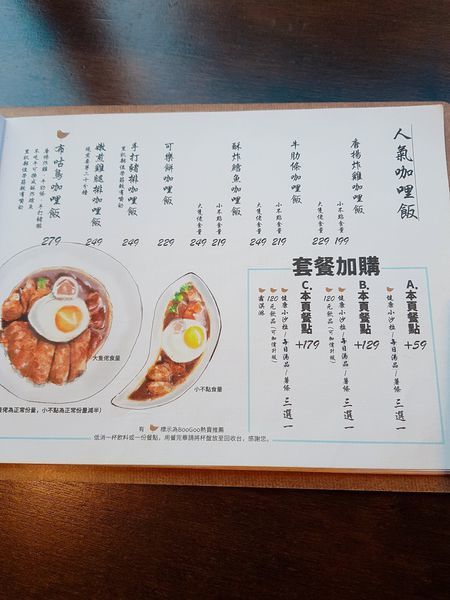 人氣咖哩飯
唐揚炸雞咖哩飯
小不點食量 199
大隻佬食量 229
牛肋條咖哩飯
小不點食量 219
大隻佬食量 249
酥炸鱈魚咖哩飯
小不點食量 219
大隻佬食量 249
可樂餅咖哩飯
229
手打豬排咖哩飯
里肌鬆阪菲筋較有嚼勁
249
嫩煎雞腿排咖哩飯
現煎要等二十分鐘
249
布咕鳥咖哩飯
唐揚炸雞、牛肋條、手打豬排
不吃牛可換成酥炸鱈魚
279
套餐加購
A.本頁餐點 +59
健康小沙拉/每日湯品/薯條 三選一
B.本頁餐點 +129
健康小沙拉/每日湯品/薯條 三選一
120元飲品(可加價升級)
C.本頁餐點 +179
健康小沙拉/每日湯品/薯條 三選一
120元飲品(可加價升級)
霜淇淋
大隻佬食量
小不點食量
佬為正常份量，小不點為正常份量減半)
有 標示為BooGoo熱賣推薦
低消一杯飲料或一份餐點，用餐完畢請將杯盤放至回收台，感謝您。